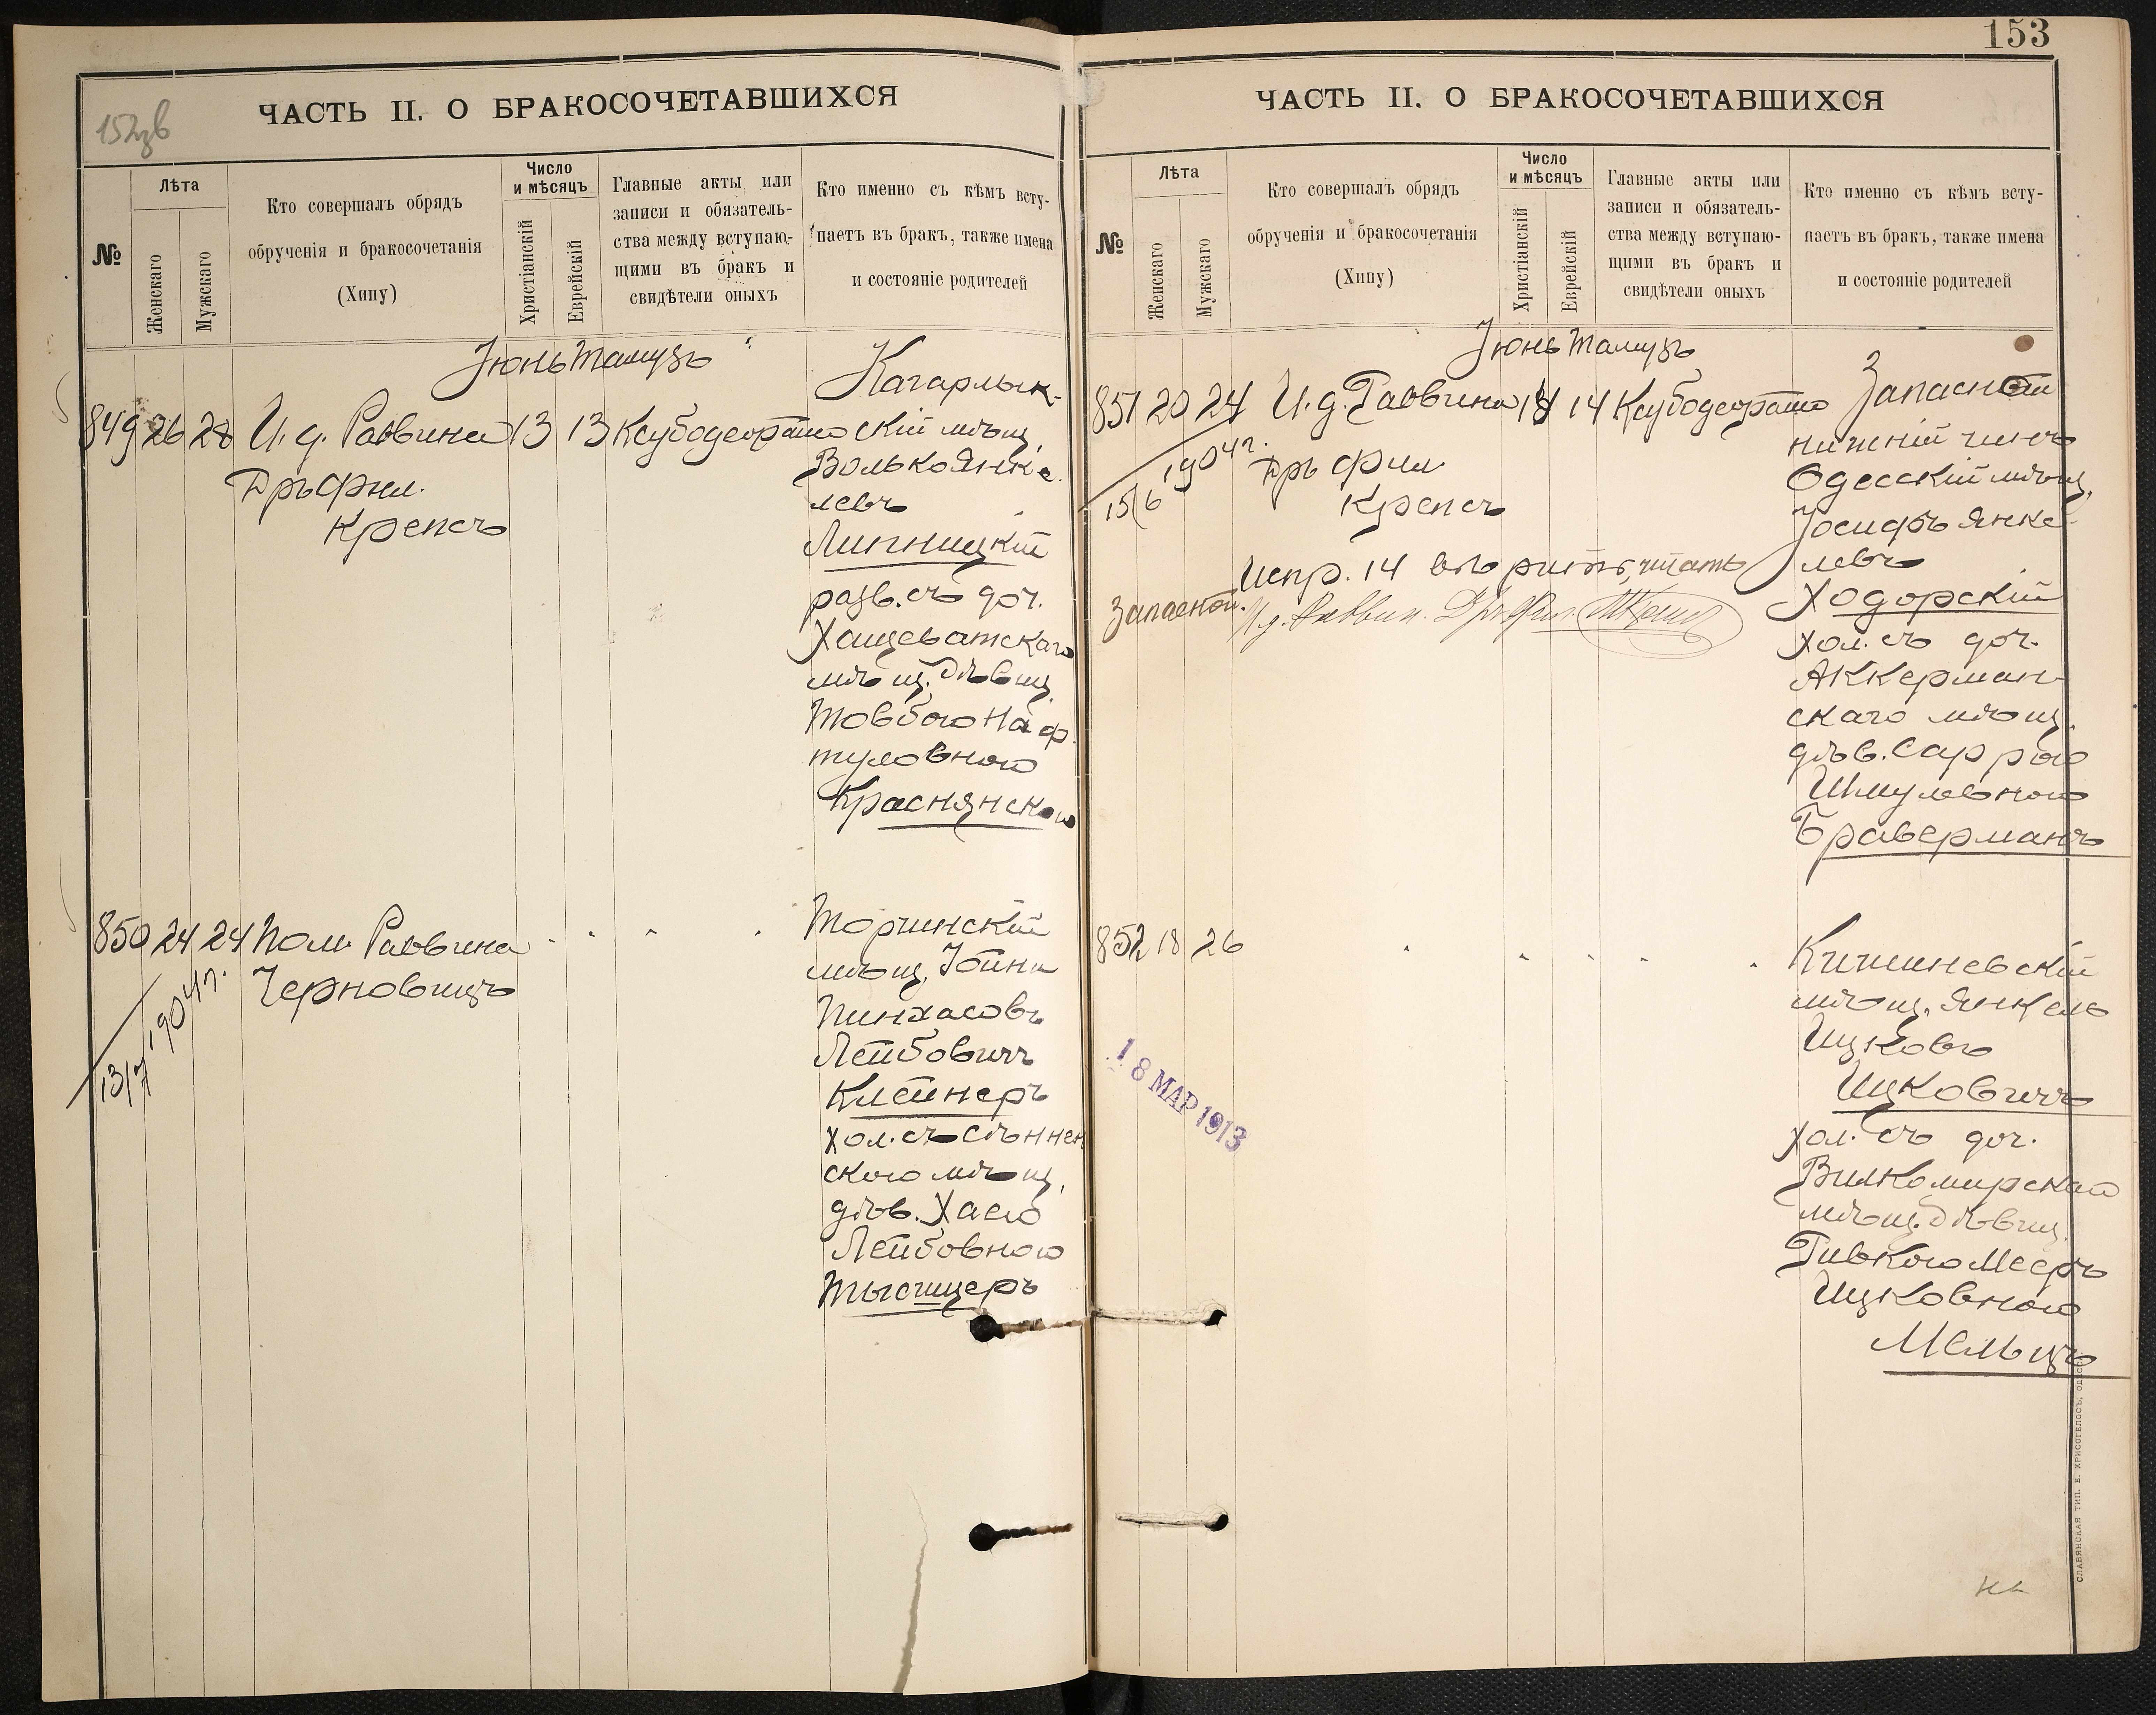 152 зв
ЧАСТЬ II. О БРАКОСОЧЕТАВШИХСЯ
№
Лѣта
Женскаго
Мужскаго
Кто совершалъ обрядъ
обрученія и бракосочетанія
(Хипу)
Число
и мѣсяцъ
Христіанскій
Еврейскій
Главные акты или
записи и обязатель-
ства между вступаю-
щими въ бракъ и
свидѣтели оныхъ
Кто именно съ кѣмъ всту-
паетъ въ бракъ, также имена
и состояніе родителей
Іюнь Тамузъ
849 26 28 И. д. Раввина 13 13 Ксубодеорато
Дръ фил.
Крепсъ
Кагарлык-
скій мѣщ.
Волько Янке
левъ
Липницкій
разв. съ доч.
Хащеватскаго
мѣщ. дѣвиц.
Товбою Наф
туловною
Краснянскою
850 24 24 Пом. Раввина
Черновицъ
13/7 1904 г.
Торчинскій
мѣщ. Іойна
Пинхасовъ
Лейбовичъ
Клейнеръ
хол. съ Сѣннен
ского мѣщ.
дѣв. Хаею
Лейбовною
Тысшцеръ
153
ЧАСТЬ II. О БРАКОСОЧЕТАВШИХСЯ
№
Лѣта
Женскаго
Мужскаго
Кто совершалъ обрядъ
обрученія и бракосочетанія
(Хипу)
Число
и мѣсяцъ
Христіанскій
Еврейскій
Главные акты или
записи и обязатель-
ства между вступаю-
щими въ бракъ и
свидѣтели оныхъ
Кто именно съ кѣмъ всту-
паетъ въ бракъ, также имена
и состояніе родителей
Іюнь Тамузъ
851 20 24 И. д. Раввина 14 14 Ксубодеорато
15/6 1904 г.
Дръ фил
Крепсъ
Испр. 14 вѣрить, читать
Запасной. И. д. Раввин. Дръ Фил.
Запасной
нижній чинъ
Одесскій мѣщ.
Іосифъ Янке-
левъ
Ходорскій
хол. съ доч.
Аккерман-
скаго мѣщ.
дѣв. Саррою
Шмулевною
Браверманъ
852 18 26
18 МАР 1913
Кишиневскій
мѣщ. Янкель
Ицковъ
Ицковичъ
хол. съ доч.
Вилкомирскаго
мѣщ. дѣвиц.
Ривкою Мееръ
Ицковною
Мельцъ
СЛАВЯНСКАЯ ТИП. Е. ХРИСОГЕЛОСЪ, ОДЕССА